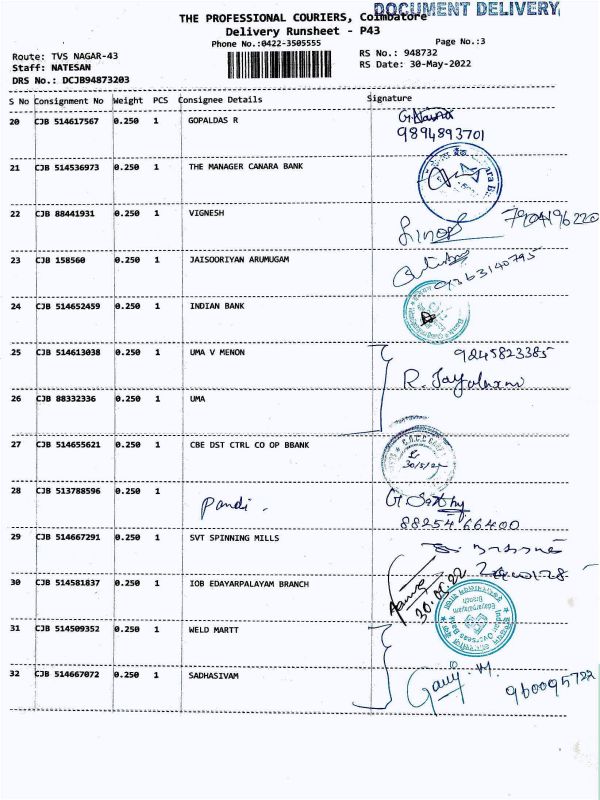 DOCUMENT DELIVERY
THE PROFESSIONAL COURIERS, Coimbatore
Delivery Runsheet - P43
Phone No.:0422-3505555
Page No.:3
Route: TVS NAGAR-43
RS No.: 948732
Staff: NATESAN
RS Date: 30-May-2022
DRS No.: DCJB94873203
S No Consignment No Weight PCS Consignee Details Signature
20 CJB 514617567 0.250 1 GOPALDAS R
9894893701
21 CJB 514536973 0.250 1 THE MANAGER CANARA BANK
22 CJB 88441931 0.250 1 VIGNESH
23 CJB 158560 0.250 1 JAISOORIYAN ARUMUGAM
24 CJB 514652459 0.250 1 INDIAN BANK
25 CJB 514613038 0.250 1 UMA V MENON
9245823385
26 CJB 88332336 0.250 1 UMA
27 CJB 514655621 0.250 1 CBE DST CTRL CO OP BBANK
30/5/22
28 CJB 513788596 0.250 1
Pandi.
88254 66400
29 CJB 514667291 0.250 1 SVT SPINNING MILLS
30 CJB 514581837 0.250 1 IOB EDAYARPALAYAM BRANCH
30.05.22
Indian Overseas Bank
Edayarpalayam
Branch
31 CJB 514509352 0.250 1 WELD MARTT
32 CJB 514667072 0.250 1 SADHASIVAM
960095722